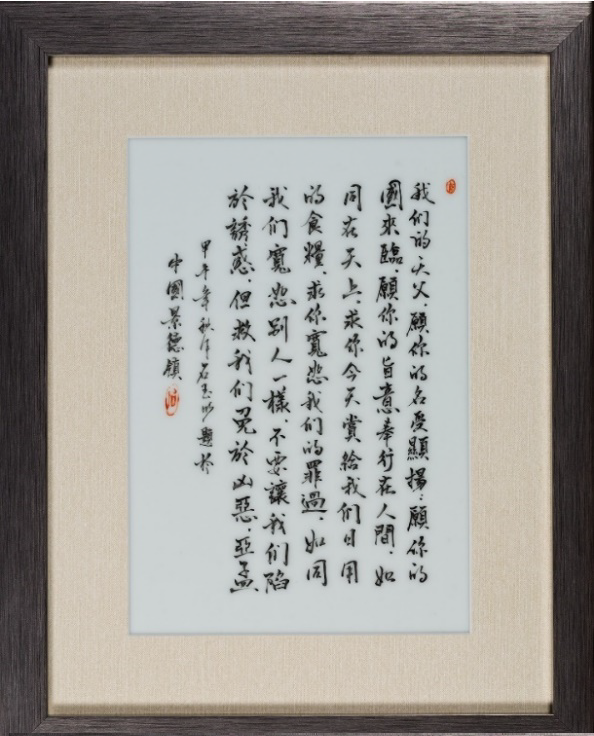 我们的天父，願你的名受顯揚；願你的
國來臨，願你的旨意奉行在人間，如
同在天上，求你今天賞給我们日用
的食糧，求你寬恕我们的罪過，如同
我们寬恕别人一樣，不要讓我们陷
於誘惑，但救我们免於凶惡，亞孟
甲午年秋月石玉題於
中國景德鎮